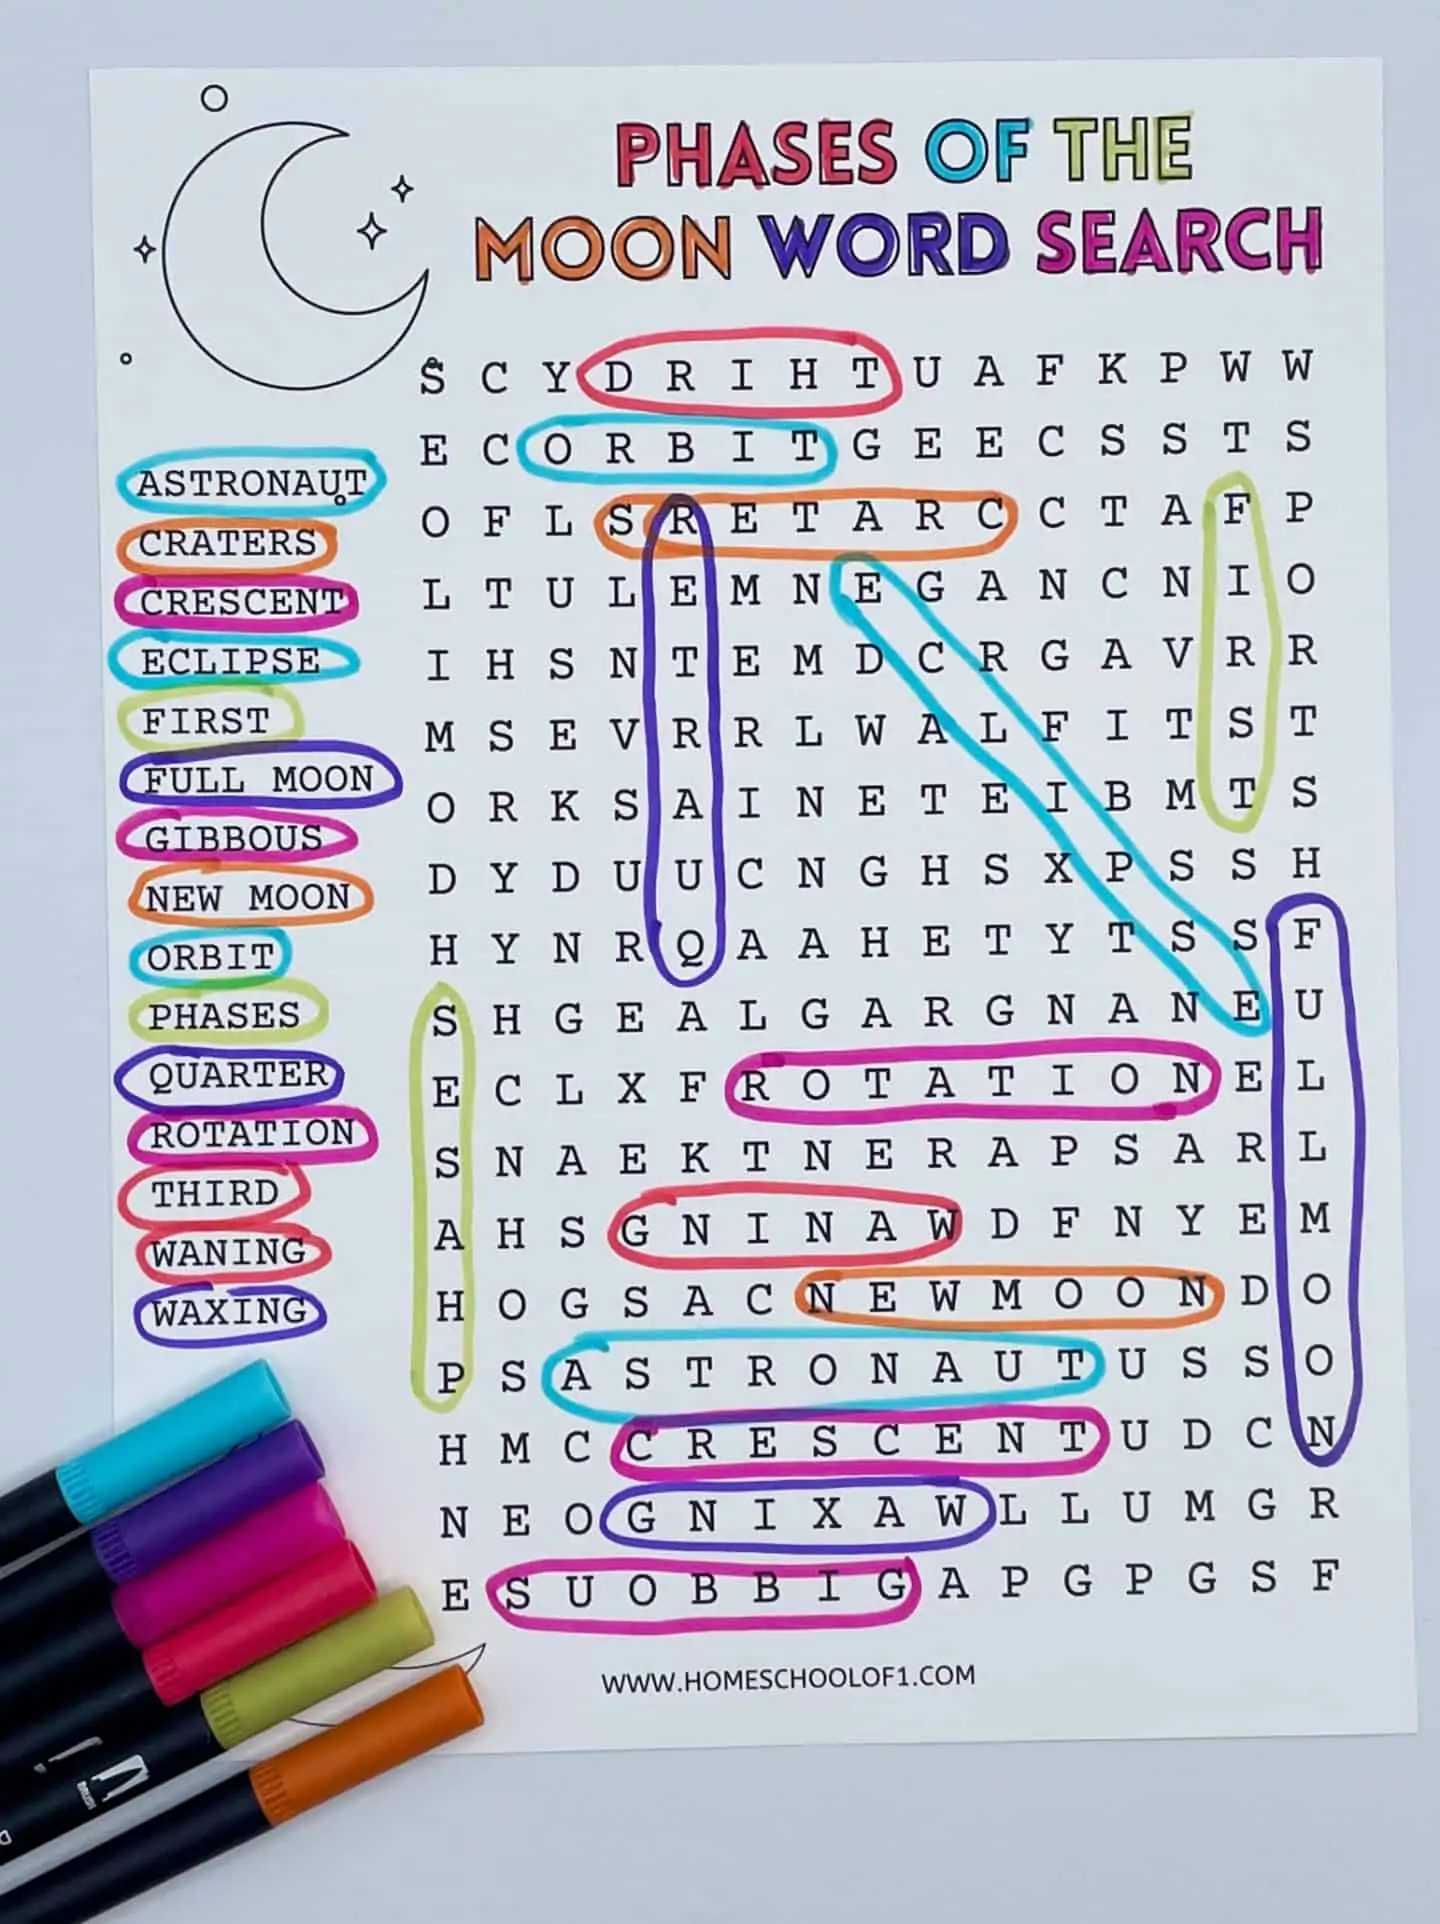 PHASES OF THE
MOON WORD SEARCH
ASTRONAUT
CRATERS
CRESCENT
ECLIPSE
FIRST
FULL MOON
GIBBOUS
NEW MOON
ORBIT
PHASES
QUARTER
ROTATION
THIRD
WANING
WAXING
S C Y D R I H T U A F K P W W
E C O R B I T G E E C S S T S
O F L S R E T A R C C T A F P
L T U L E M N E G A N C N I O
I H S N T E M D C R G A V R R
M S E V R R L W A L F I T S T
O R K S A I N E T E I B M T S
D Y D U U C N G H S X P S S H
H Y N R Q A A H E T Y T S S F
S H G E A L G A R G N A N E U
E C L X F R O T A T I O N E L
S N A E K T N E R A P S A R L
A H S G N I N A W D F N Y E M
H O G S A C N E W M O O N D O
P S A S T R O N A U T U S S O
H M C C R E S C E N T U D C N
N E O G N I X A W L L U M G R
E S U O B B I G A P G P G S F
WWW.HOMESCHOOLOF1.COM